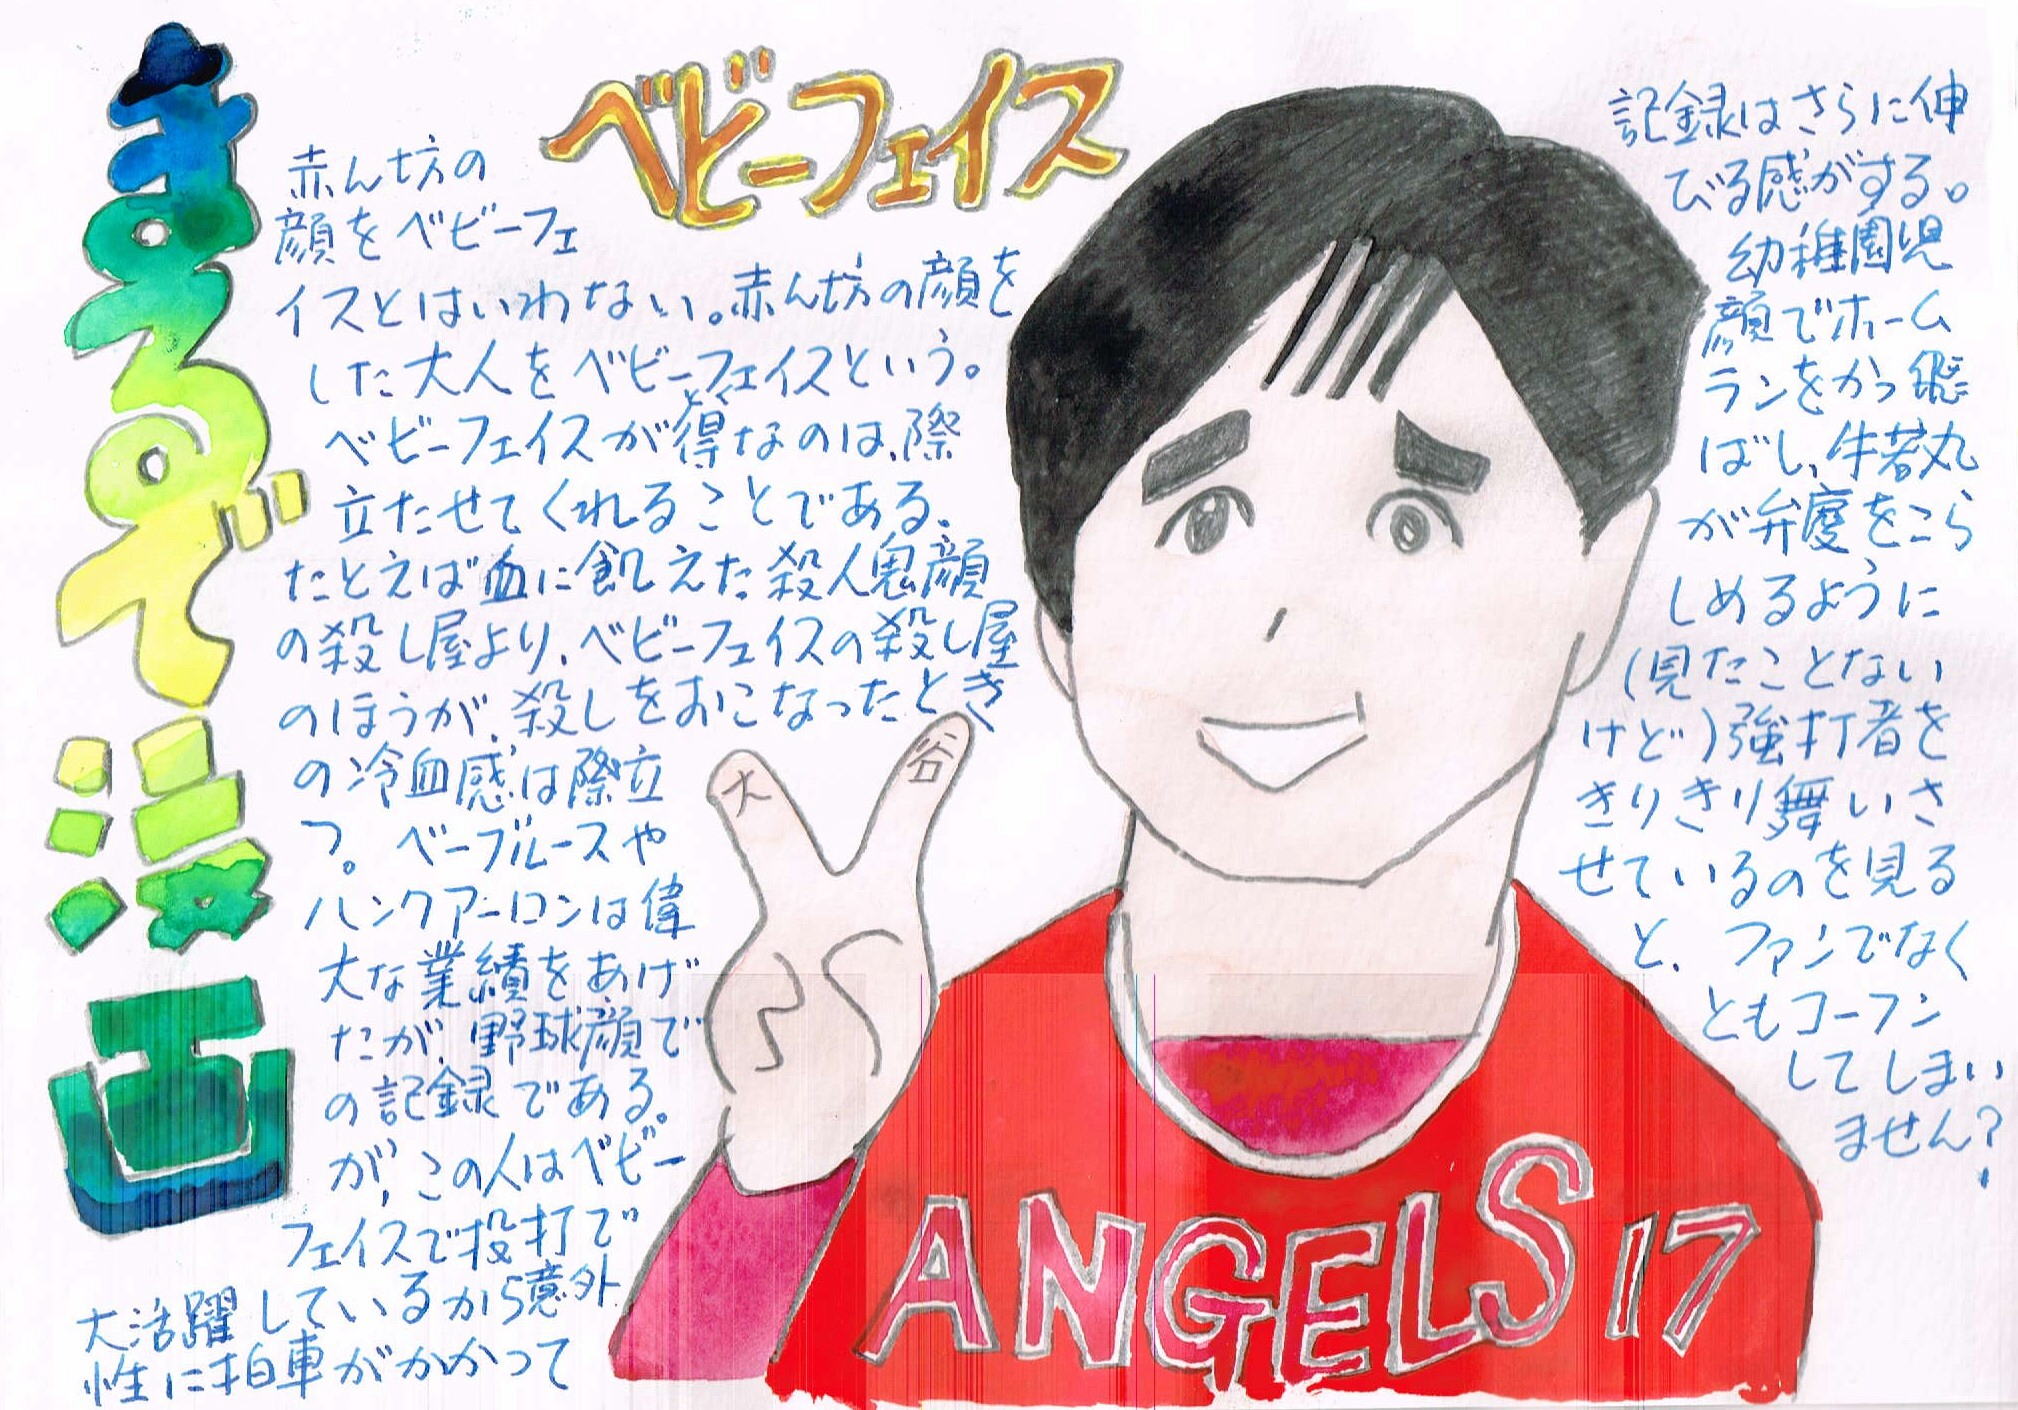 まるで漫画
ベビーフェイス
赤ん坊の
顔をベビーフェ
イスとはいわない。赤ん坊の顔を
した大人をベビーフェイスという。
ベビーフェイスが得なのは、際
とく
立たせてくれることである。
たとえば血に飢えた殺人鬼顔
の殺し屋より、ベビーフェイスの殺し屋
のほうが、殺しをおこなったとき
の冷血感は際立
つ。ベーブルースや
ハンクアーロンは偉
大な業績をあげ
たが、野球顔で
の記録である。
が、この人はベビー
フェイスで投打で
大活躍しているから意外
性に拍車がかかって
記録はさらに伸
びる感がする。
幼稚園児
顔でホーム
ランをかっ飛
ばし、牛若丸
が弁慶をこら
しめるように
(見たことない
けど)強打者を
きりきり舞いさ
せているのを見る
と、ファンでなく
ともコーフン
してしまい
ません?
大
谷
ANGELS 17